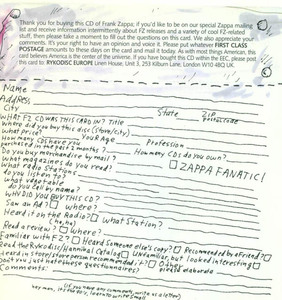 Thank you for buying this CD of Frank Zappa; if you'd like to be on our special Zappa mailing
list and receive information intermittently about FZ releases and a variety of cool FZ-related
stuff, then please take a moment to fill out the questions on this card. We also appreciate your
comments. It's your right to have an opinion and voice it. Please put whatever FIRST CLASS
POSTAGE amounts to these days on the card and mail it today. As with most things American, this
card believes America is the center of the universe. If you have bought this CD within the EEC, please post
this card to RYKODISC EUROPE Linen House, Unit 3, 253 Kilburn Lane, London W10 4BQ UK.
Name
Address
City State ZIP
POSTALCODE
WHAT FZ CD WAS THIS CARD IN? Title
Where did you buy this disc (store/city)
What price? Your Age Profession
How many CDs have you
purchased in the past 2 months? How many CDs do you own?
Do you buy merchandise by mail? ZAPPA FANATIC!
What magazines do you read?
What radio stations
do you listen to?
What vegetable
do you call by name?
WHY DID YOU BUY THIS CD?
Saw an Ad? Where?
Heard it on the Radio? What Station?
(ha, ha)
Read a review? Where?
Familiar with FZ? Heard someone else's copy? Recommended by a friend?
Read the Rykodisc/Hannibal Catalog Unfamiliar, but looked interesting
Heard in store/store person recommended it? Other
please elaborate
Don't you just hate those questionnaires?
Comments:
(if you have any comments, write us a letter)
hey man, it's too tiny, learn to write small